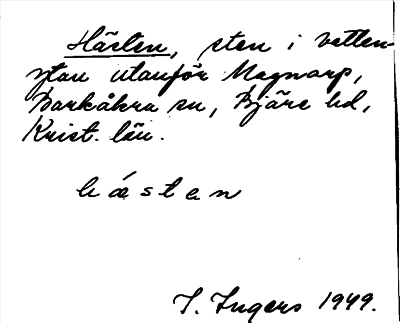 Hästen, sten i vatten-
ytan utanför Magnarp,
Barkåkra sn, Bjäre hd,
Krist. län.
hǽstan
I. Ingers 1949.